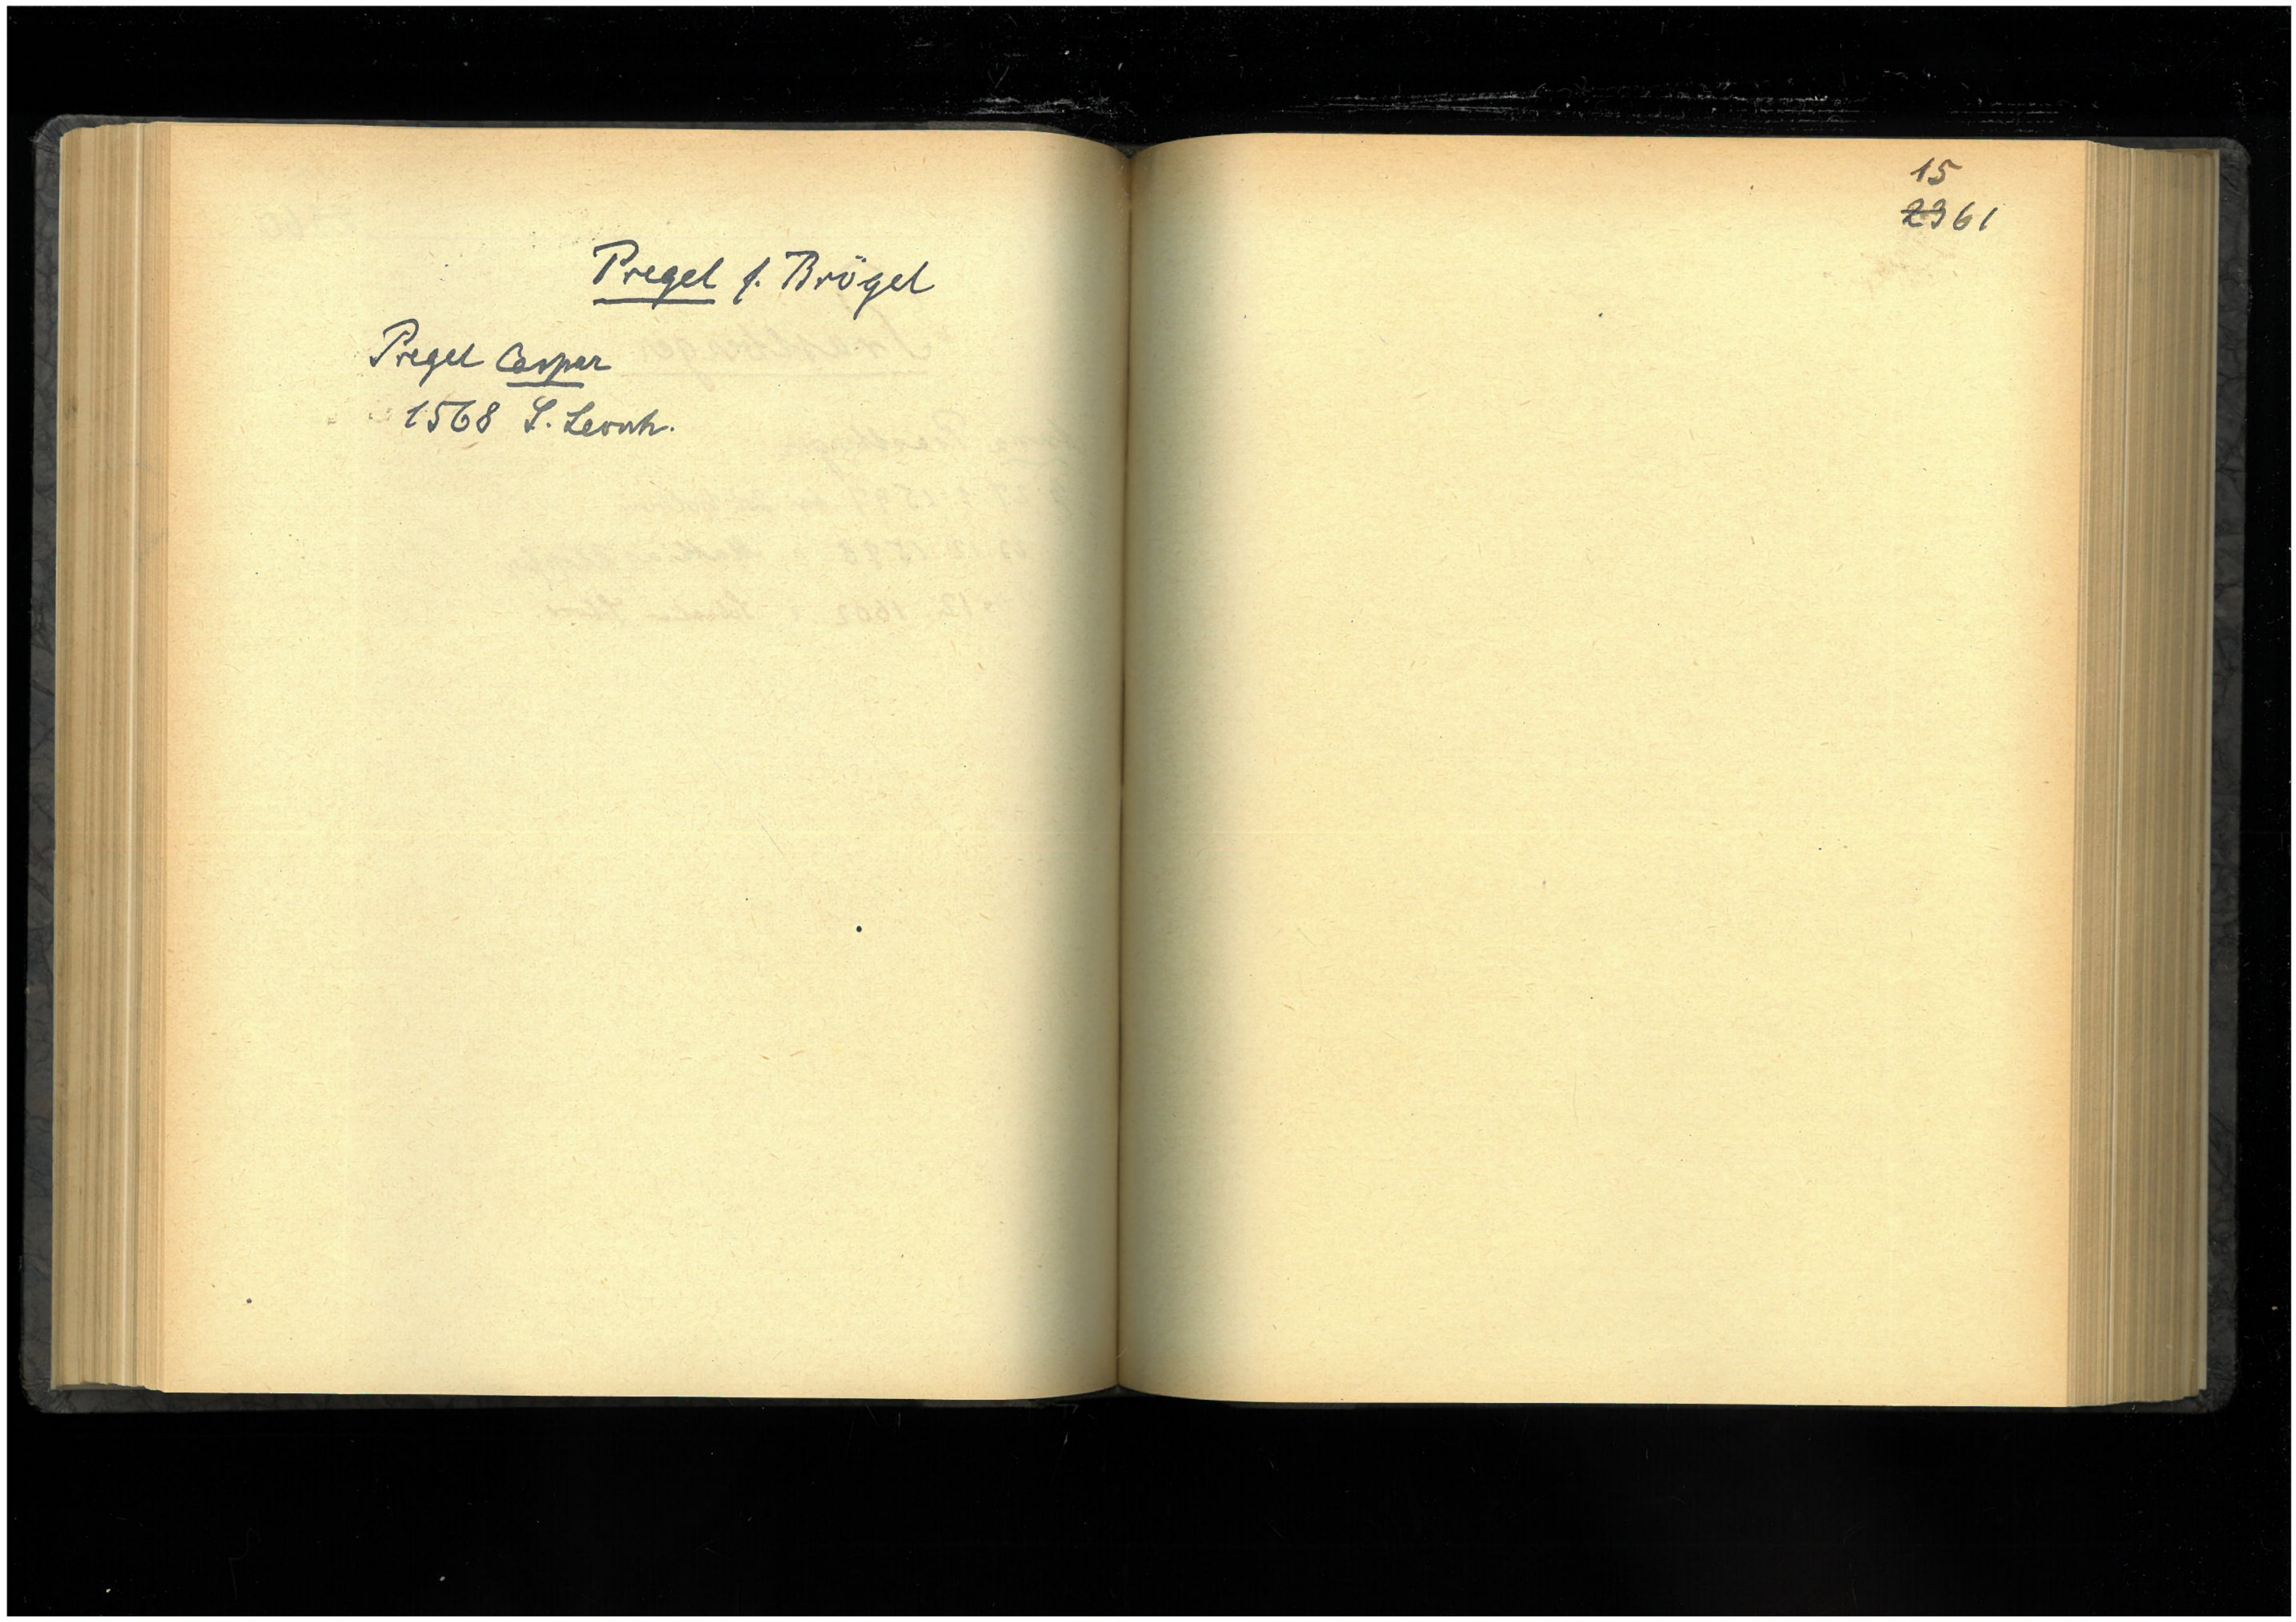 Pregel s. Brögel
Pregel Caspar
1568 S. Leonh.
15
2361